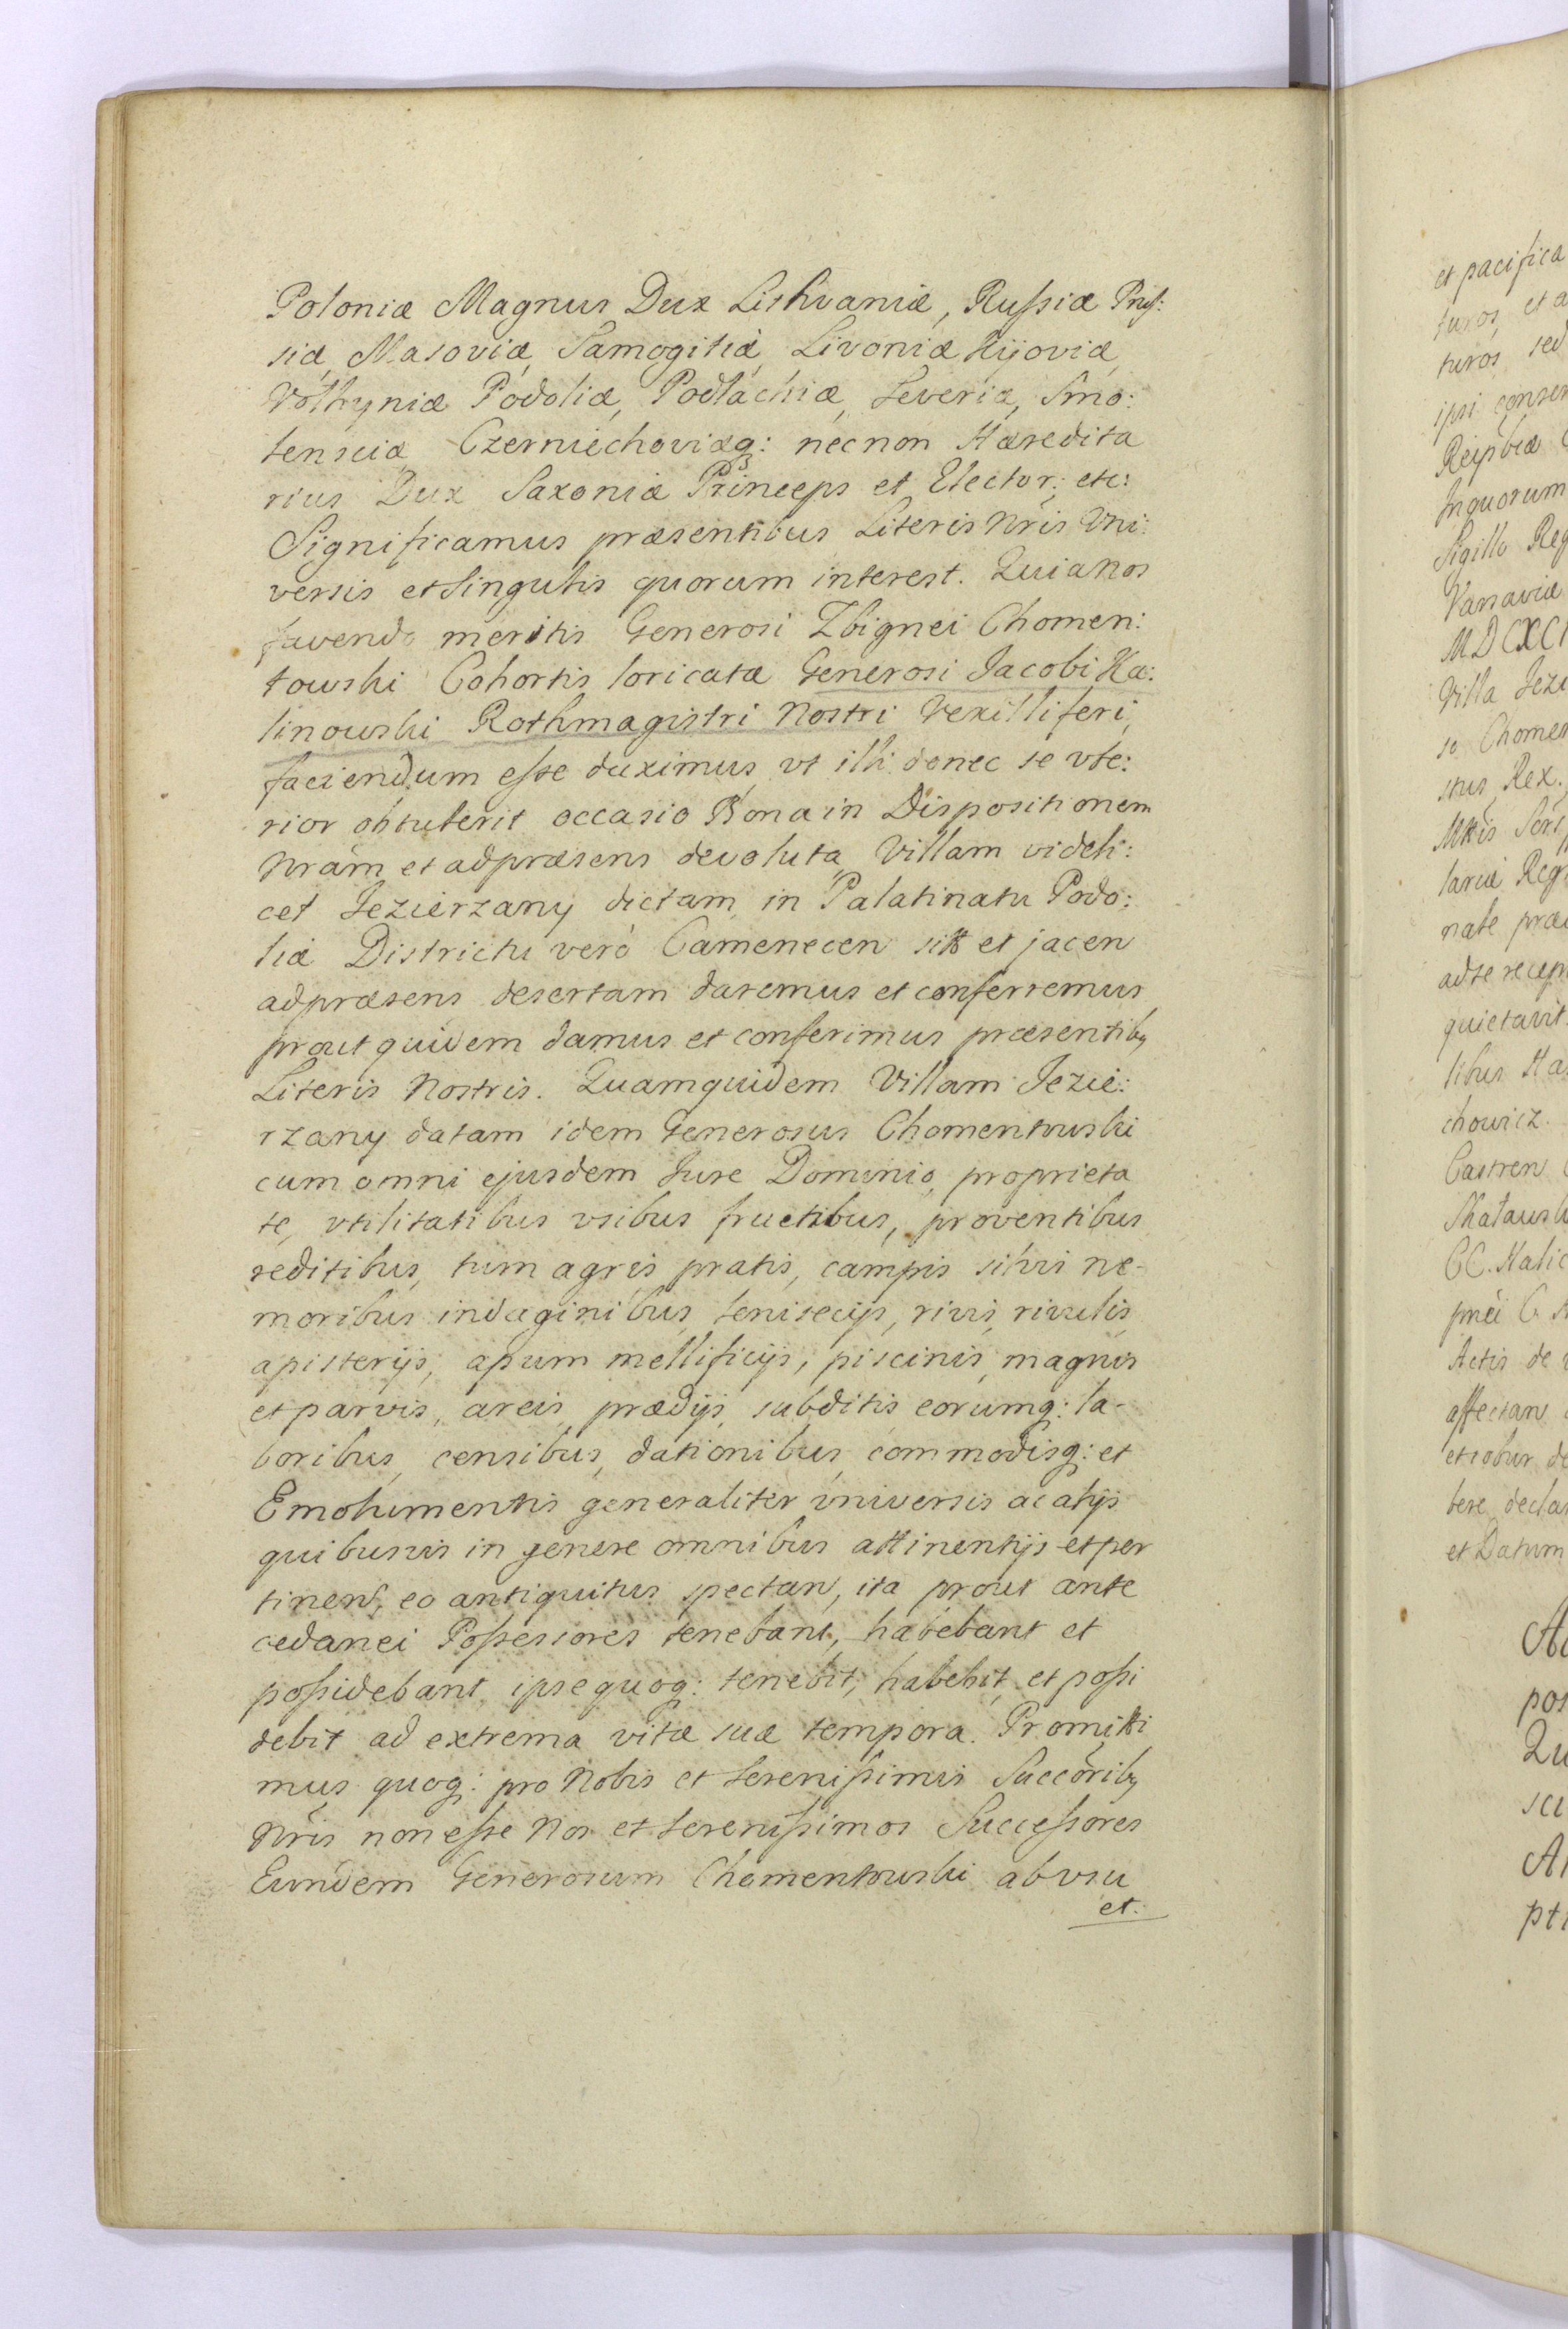 Poloniæ Magnus Dux Lithvaniæ, Rußiæ Pruß:
siæ, Masoviæ, Samogitiæ, Livoniæ Kijoviæ,
Volhyniæ Podoliæ, Podlachiæ, Severiæ, Smo:
lensciæ Czerniechoviæq: necnon Hæredita
rius Dux Saxoniæ Princeps et Elector: etc:
Significamus præsentibus Literis Nr̃is Vni:
versis et Singulis quorum interest. Quia Nos
favendo meritis Generosi Zbignei Chomen:
towski Cohortis loricatæ Generosi Jacobi Ka:
linowski Rothmagistri Nostri Vexilliferi,
faciendum eße duximus, vt illi donec se vlte:
rior obtulerit occasio Bona in Dispositionem
Nr̃am et ad præsens devoluta, Villam videli:
cet Jezierzany dictam, in Palatinatu Podo:
liæ Districtu verò Camenecen sitt et jacen
ad præsens desertam daremus et conferremus
prout quidem damus et conferimus præsentiby
Literis Nostris. Quamquidem Villam Jezie:
rzany datam idem Generosus Chomentowski
cum omni ejusdem Jure Dominio, proprieta
te, vtilitatibus vsibus fructibus, proventibus
reditibus, tum agris pratis, campis silvis ne-
moribus indaginibus, fenisecijs, rivis, rivulis,
apisterijs, apum mellificijs, piscinis, magnis
et parvis, areis, prædijs, subditis eorumq: la-
boribus, censibus, dationibus, commodisq: et
Emolumentis generaliter vniversis ac alijs
quibusvis in genere omnibus attinentijs et per
tinen, eo antiquitus spectan, ita prout ante
cedanei Poßessores tenebant, habebant et
poßidebant, ipse quoq: tenebit, habebit, et poßi
debit ad extrema vitæ suæ tempora. Promitti
mus quoq: pro Nobis et Serenißimis Succõriby
Nr̃is non eße Nos et Serenißimos Succeßores
Eundem Generosum Chomentowski ab vsu
et.

et pacifica
turos, et a
turos, sed
ipsi conser
Reipblæ
In quorum
Sigillo Reg
Varsaviæ
MDCXCI
Villa Jezi
so Chomen
stus Rex.
Mttis
lariæ Reg
nale præ
ad se recep
quietavit
libus Ha
chowicz.
Castren
Skałausk
CC. Halic
Actis de
affectan
et robur de
bere, declar
et Datum
A
pos
Qu
sci
A
pt